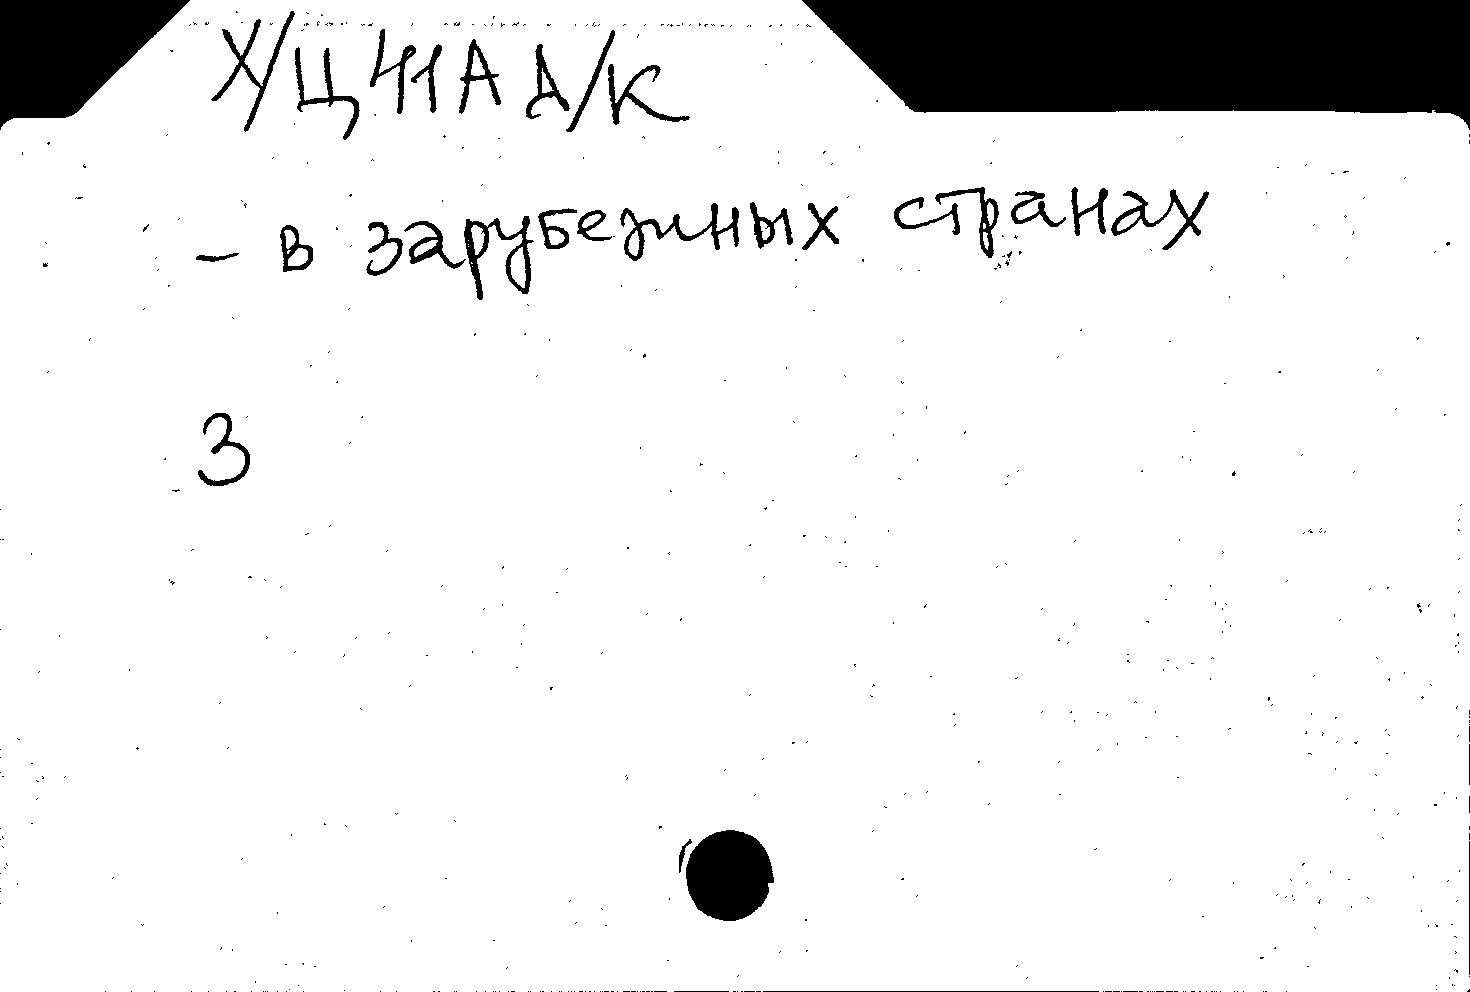 Х/Ц41А Д/К
- в зарубежных странах
З